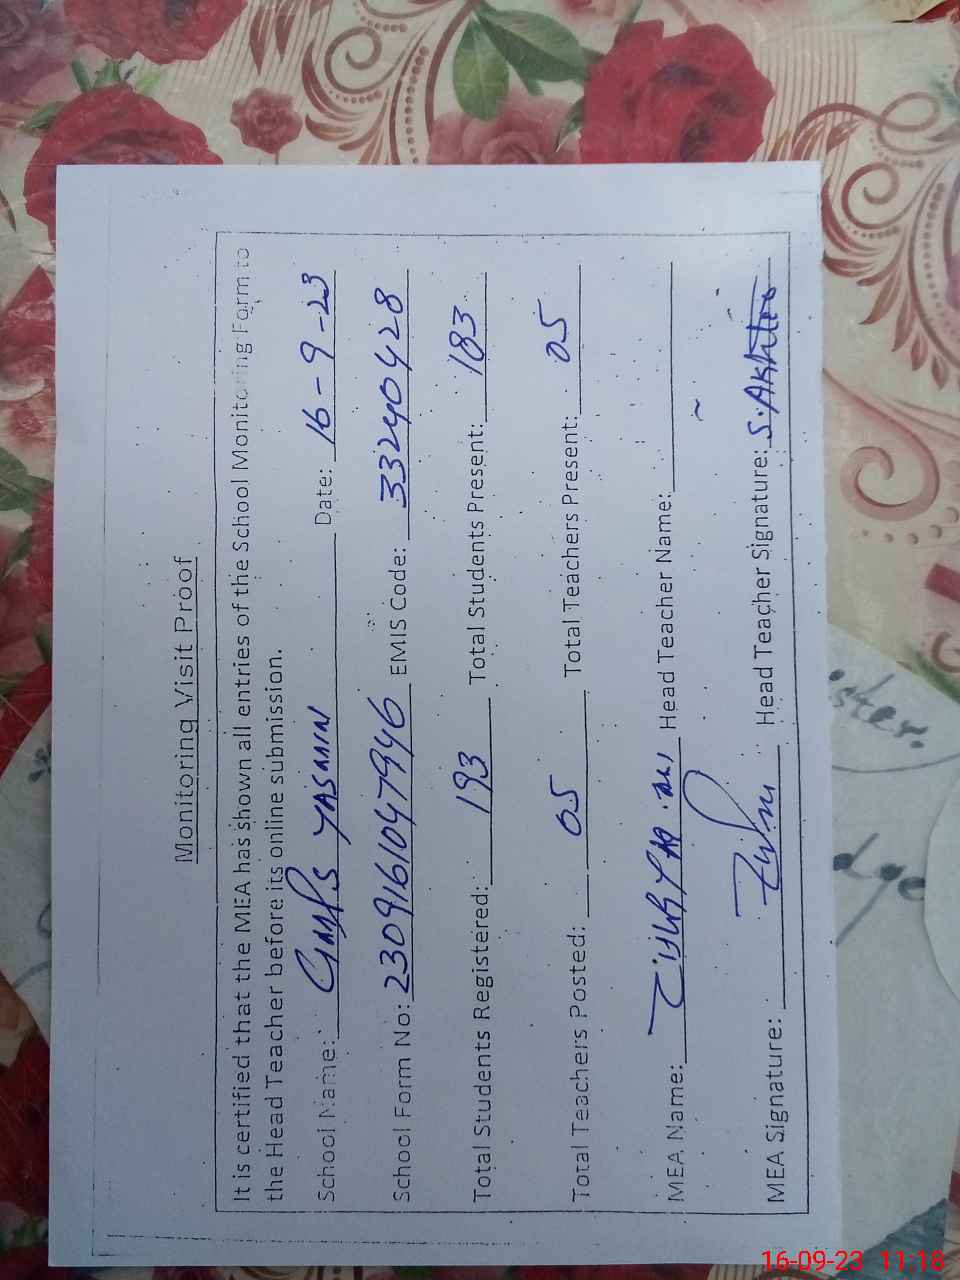 Monitoring Visit Proof
It is certified that the MEA has shown all entries of the School Monitoring Form to
the Head Teacher before its online submission.
School Name: GMPS YASMIN Date: 16-9-23
School Form No: 23091610447946 EMIS Code: 33240428
Total Students Registered: 193 Total Students Present: 183
Total Teachers Posted: 05 Total Teachers Present: 05
MEA Name: Head Teacher Name:
MEA Signature: Head Teacher Signature: S.Akhtar
16-09-23 11:18